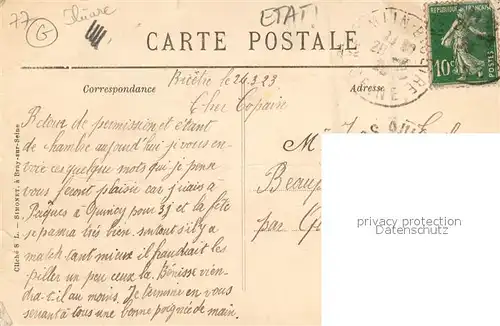 77
G
ETAT!
CARTE POSTALE
RÉPUBLIQUE FRANÇAISE
10c
POSTES
Correspondance
Adresse
Bicêtre le 24.3.23
Cher Copain
Retour de permission et étant
de chambre aujourd'hui je vous en-
voie ces quelque mots qui je pense
vous feront plaisir car j'irais à
Pâques à Quincy pour 3j et la fête
se passera très bien surtout s'il y a
match tant mieux il faudrait les
piller un peu ceux là. Bénisse vien-
dra-t-il au moins. Je termine en vous
serrant à tous une bonne poignée de main.
M
Beau
par
privacy protection
Persönlichkeitsschutz
Cliché S. J. — SIMONET, à Bray-sur-Seine